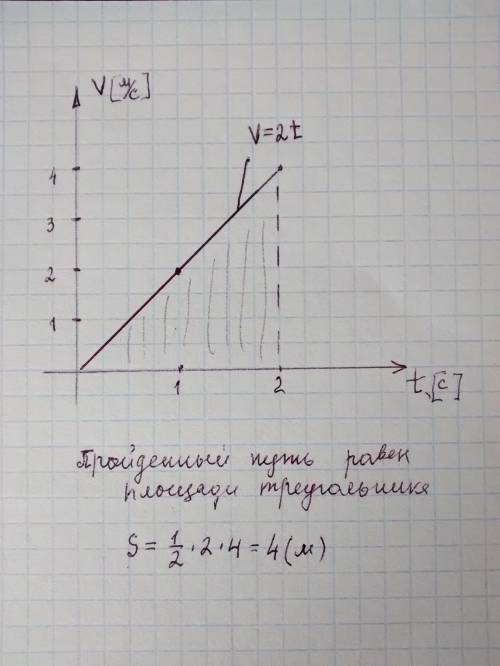 V [м/с]
V=2t
4
3
2
1
1
2
t [с]
Пройденный путь равен
площади треугольника
S = 1/2 · 2 · 4 = 4 (м)